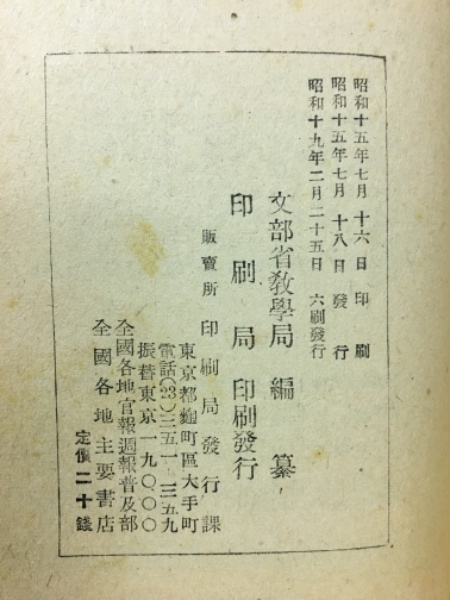 昭和十五年七月十六日印刷
昭和十五年七月十八日發行
昭和十九年二月二十五日六刷發行
文部省教學局編纂
印刷局印刷發行
販賣所 印刷局發行課
東京都麴町區大手町
電話(23)三五一一三五九
振替東京一九〇〇〇
全國各地官報週報普及部
全國各地主要書店
定價二十錢